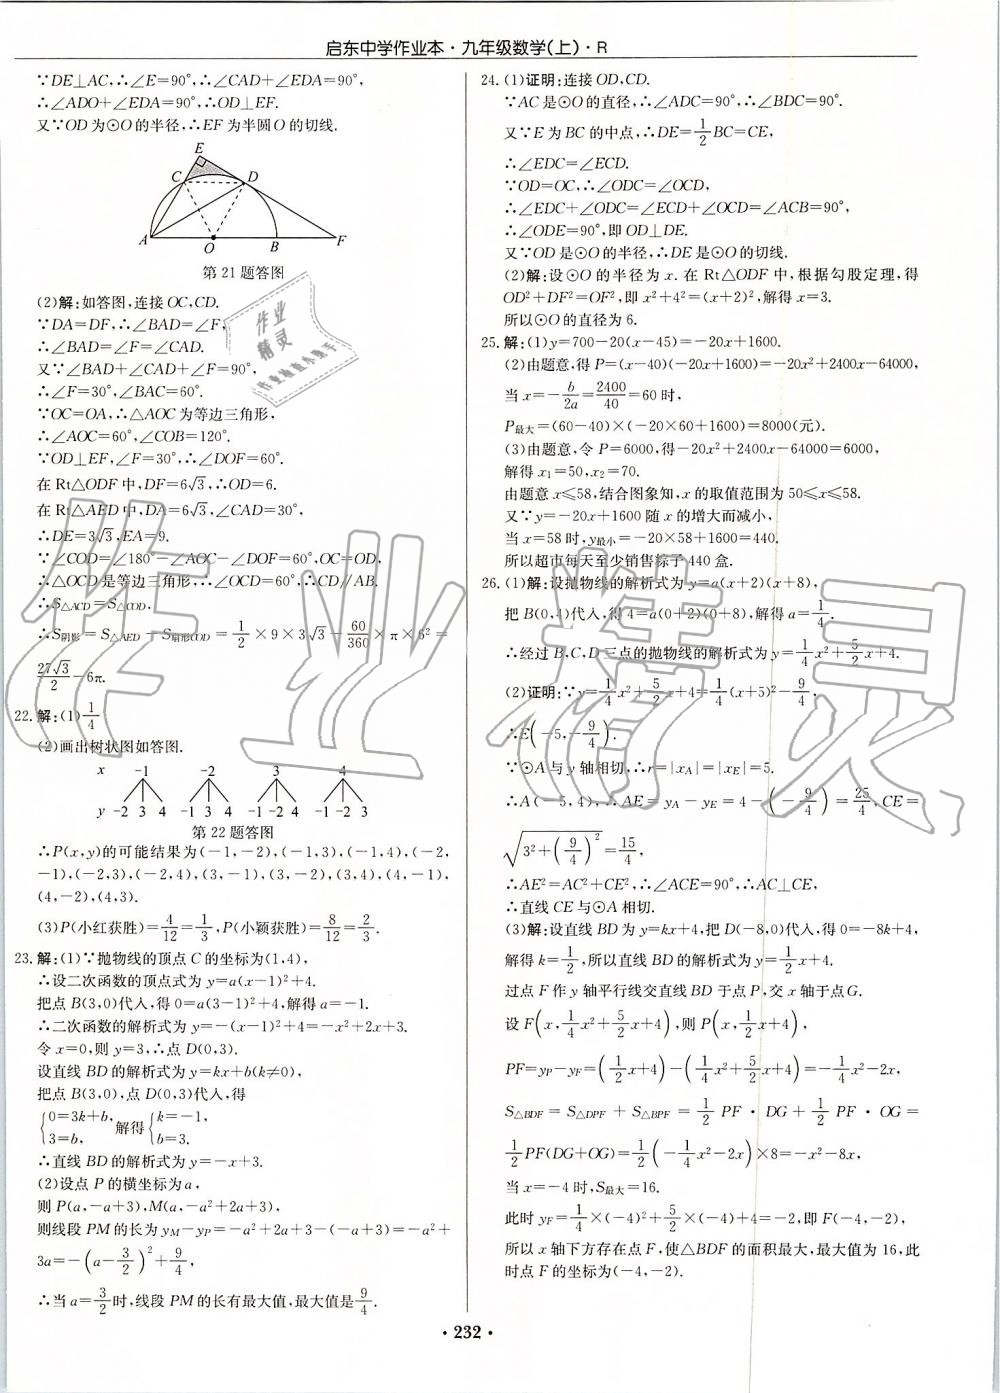 启东中学作业本·九年级数学(上)·R
∵DE⊥AC,∴∠E=90°,∴∠CAD+∠EDA=90°,
∴∠ADO+∠EDA=90°,∴OD⊥EF.
又∵OD为⊙O的半径,∴EF为半圆O的切线.
E
C D
A O B F
第21题答图
(2)解:如答图,连接OC,CD.
∵DA=DF,∴∠BAD=∠F,
∴∠BAD=∠F=∠CAD.
又∵∠BAD+∠CAD+∠F=90°,
∴∠F=30°,∠BAC=60°.
∵OC=OA,∴△AOC为等边三角形,
∴∠AOC=60°,∠COB=120°.
∵OD⊥EF,∠F=30°,∴∠DOF=60°.
在Rt△ODF中,DF=6√3,∴OD=6.
在Rt△AED中,DA=6√3,∠CAD=30°,
∴DE=3√3,EA=9.
∵∠COD=∠180°-∠AOC-∠DOF=60°,OC=OD,
∴△OCD是等边三角形,∴∠OCD=60°,∴CD//AB.
∴S△ACD=S△COD.
∴S阴影=S△AED-S扇形COD=1/2×9×3√3-60/360×π×6²=
27√3/2-6π.
22.解:(1)1/4
(2)画出树状图如答图.
x -1 -2 3 4
y -2 3 4 -1 3 4 -1 -2 4 -1 -2 3
第22题答图
∴P(x,y)的可能结果为(-1,-2),(-1,3),(-1,4),(-2,
-1),(-2,3),(-2,4),(3,-1),(3,-2),(3,4),(4,-1),
(4,-2),(4,3).
(3)P(小红获胜)=4/12=1/3,P(小颖获胜)=8/12=2/3.
23.解:(1)∵抛物线的顶点C的坐标为(1,4),
∴设二次函数的顶点式为y=a(x-1)²+4.
把点B(3,0)代入,得0=a(3-1)²+4,解得a=-1.
∴二次函数的解析式为y=-(x-1)²+4=-x²+2x+3.
令x=0,则y=3,∴点D(0,3).
设直线BD的解析式为y=kx+b(k≠0),
把点B(3,0),点D(0,3)代入,得
{0=3k+b, 3=b, 解得{k=-1, b=3.
∴直线BD的解析式为y=-x+3.
(2)设点P的横坐标为a,
则P(a,-a+3),M(a,-a²+2a+3),
则线段PM的长为yM-yP=-a²+2a+3-(-a+3)=-a²+
3a=-(a-3/2)²+9/4,
∴当a=3/2时,线段PM的长有最大值,最大值是9/4.
24.(1)证明:连接OD,CD.
∵AC是⊙O的直径,∴∠ADC=90°,∴∠BDC=90°.
又∵E为BC的中点,∴DE=1/2BC=CE,
∴∠EDC=∠ECD.
∵OD=OC,∴∠ODC=∠OCD,
∴∠EDC+∠ODC=∠ECD+∠OCD=∠ACB=90°,
∴∠ODE=90°,即OD⊥DE.
又∵OD是⊙O的半径,∴DE是⊙O的切线.
(2)解:设⊙O的半径为x.在Rt△ODF中,根据勾股定理,得
OD²+DF²=OF²,即x²+4²=(x+2)²,解得x=3.
所以⊙O的直径为6.
25.解:(1)y=700-20(x-45)=-20x+1600.
(2)由题意,得P=(x-40)(-20x+1600)=-20x²+2400x-64000,
当x=-b/2a=2400/40=60时,
P最大=(60-40)×(-20×60+1600)=8000(元).
(3)由题意,令P=6000,得-20x²+2400x-64000=6000,
解得x₁=50,x₂=70.
由题意x≤58,结合图象知,x的取值范围为50≤x≤58.
又∵y=-20x+1600随x的增大而减小,
当x=58时,y最小=-20×58+1600=440.
所以超市每天至少销售粽子440盒.
26.(1)解:设抛物线的解析式为y=a(x+2)(x+8),
把B(0,4)代入,得4=a(0+2)(0+8),解得a=1/4.
∴经过B,C,D三点的抛物线的解析式为y=1/4x²+5/2x+4.
(2)证明:∵y=1/4x²+5/2x+4=1/4(x+5)²-9/4,
∴E(-5,-9/4).
∵⊙A与y轴相切,∴r=|xA|=|xE|=5.
∴A(-5,4),∴AE=yA-yE=4-(-9/4)=25/4,CE=
√(3²+(9/4)²)=15/4,
∴AE²=AC²+CE²,∴∠ACE=90°,∴AC⊥CE,
∴直线CE与⊙A相切.
(3)解:设直线BD为y=kx+4,把D(-8,0)代入,得0=-8k+4,
解得k=1/2,所以直线BD的解析式为y=1/2x+4.
过点F作y轴平行线交直线BD于点P,交x轴于点G.
设F(x,1/4x²+5/2x+4),则P(x,1/2x+4),
PF=yP-yF=(1/2x+4)-(1/4x²+5/2x+4)=-1/4x²-2x,
S△BDF=S△DPF+S△BPF=1/2PF·DG+1/2PF·OG=
1/2PF(DG+OG)=1/2(-1/4x²-2x)×8=-x²-8x,
当x=-4时,S最大=16.
此时yF=1/4×(-4)²+5/2×(-4)+4=-2,即F(-4,-2),
所以x轴下方存在点F,使△BDF的面积最大,最大值为16,此
时点F的坐标为(-4,-2).
作业精灵
作业精灵
·232·